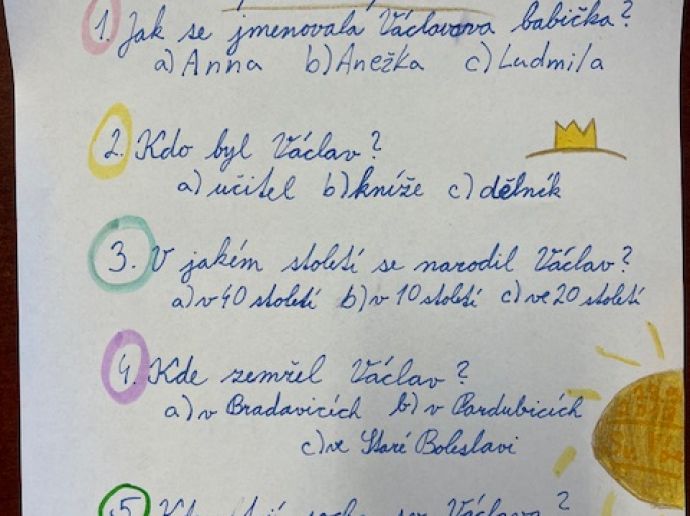 1. Jak se jmenovala Václavova babička?
a) Anna b) Anežka c) Ludmila
2. Kdo byl Václav?
a) učitel b) kníže c) dělník
3. V jakém století se narodil Václav?
a) v 40 století b) v 10 století c) ve 20 století
4. Kde zemřel Václav?
a) v Bradavicích b) v Pardubicích
c) ve Staré Boleslavi
5. sv. Václava?